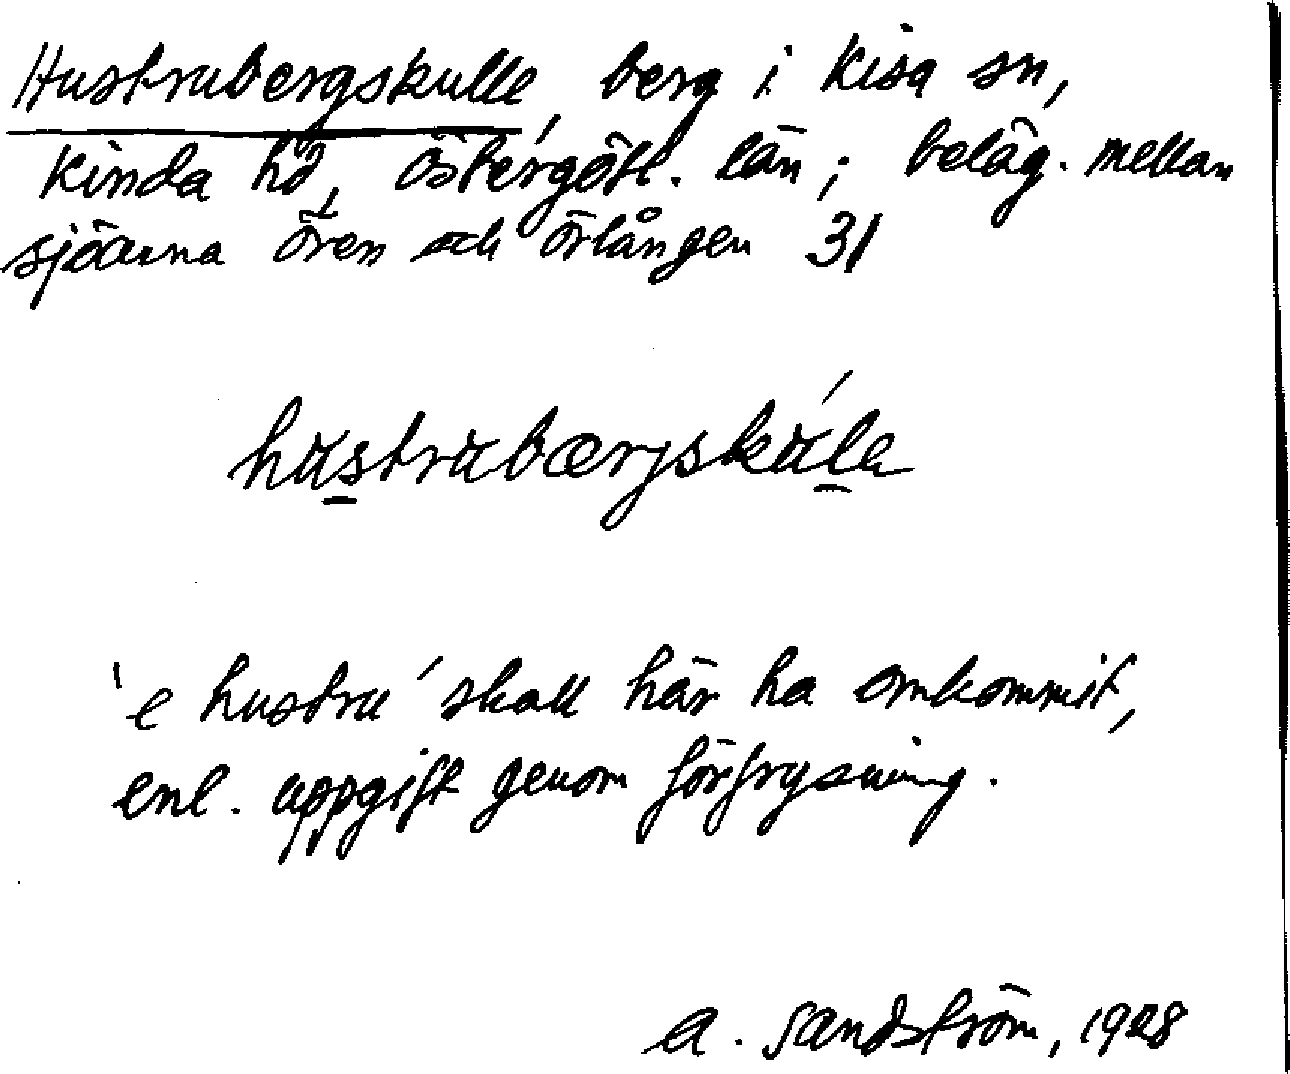 Hustrubergskulle, berg i Kisa sn,
Kinda hd, Östergötl. län; beläg. mellan
sjöarna Ören och Örlången 31
hustrubærjskúla
'e hustru' skall här ha omkommit,
enl. uppgift genom förfrysning.
A. Sandström, 1928